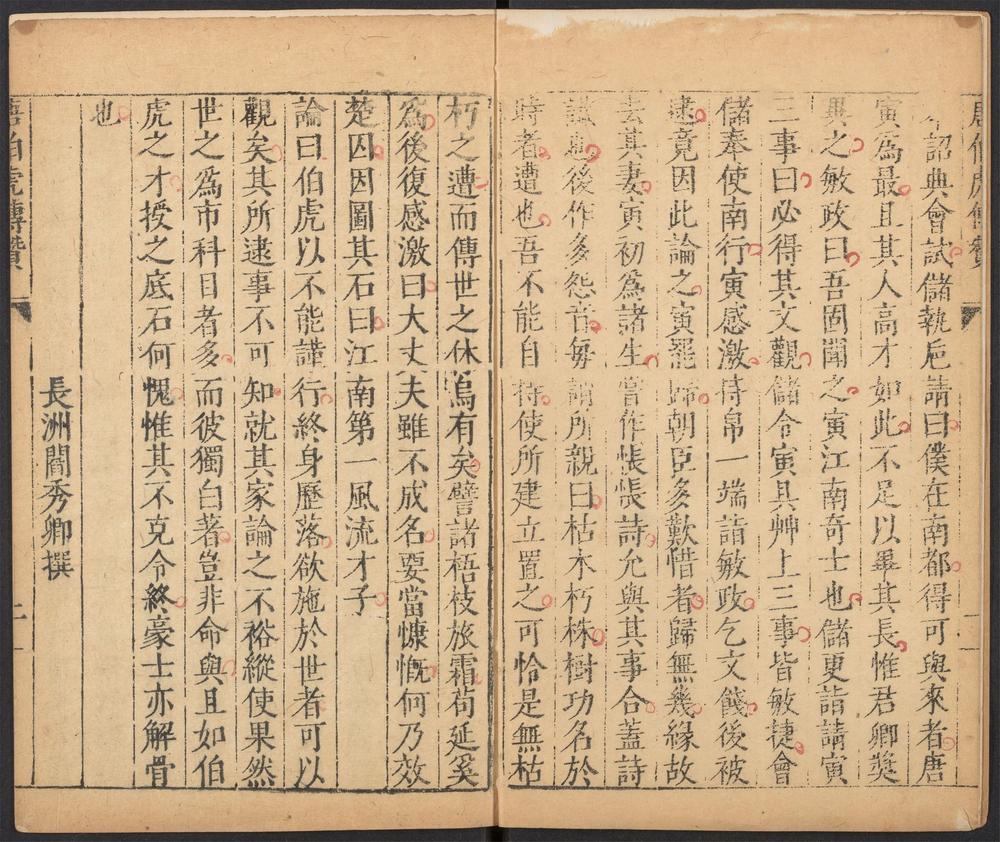 唐伯虎傳贊
詔典會試儲執卮請曰僕在南都得可與來者唐
寅爲最且其人高才如此不足以畢其長惟君卿獎
異之敏政曰吾固聞之寅江南奇士也儲更詣請寅
三事曰必得其文觀儲令寅具艸上三事皆敏捷會
儲奉使南行寅感激持帛一端詣敏政乞文餞後被
逮竟因此論之寅罷歸朝臣多歎惜者歸無幾緣故
去其妻寅初爲諸生嘗作悵悵詩允與其事合蓋詩
讖也後作多怨音每謂所親曰枯木朽株樹功名於
時者遭也吾不能自持使所建立置之可恰是無枯
朽之遭而傳世之休烏有矣譬諸梧枝旅霜苟延奚
爲後復感激曰大丈夫雖不成名要當慷慨何乃效
楚囚因圖其石曰江南第一風流才子
論曰伯虎以不能謹行終身歷落欲施於世者可以
觀矣其所逮事不可知就其家論之不裕縱使果然
世之爲市科目者多而彼獨白著豈非命與且如伯
虎之才授之底石何愧惟其不克令終豪士亦解骨
也
長洲閻秀卿撰
唐伯虎傳贊
二